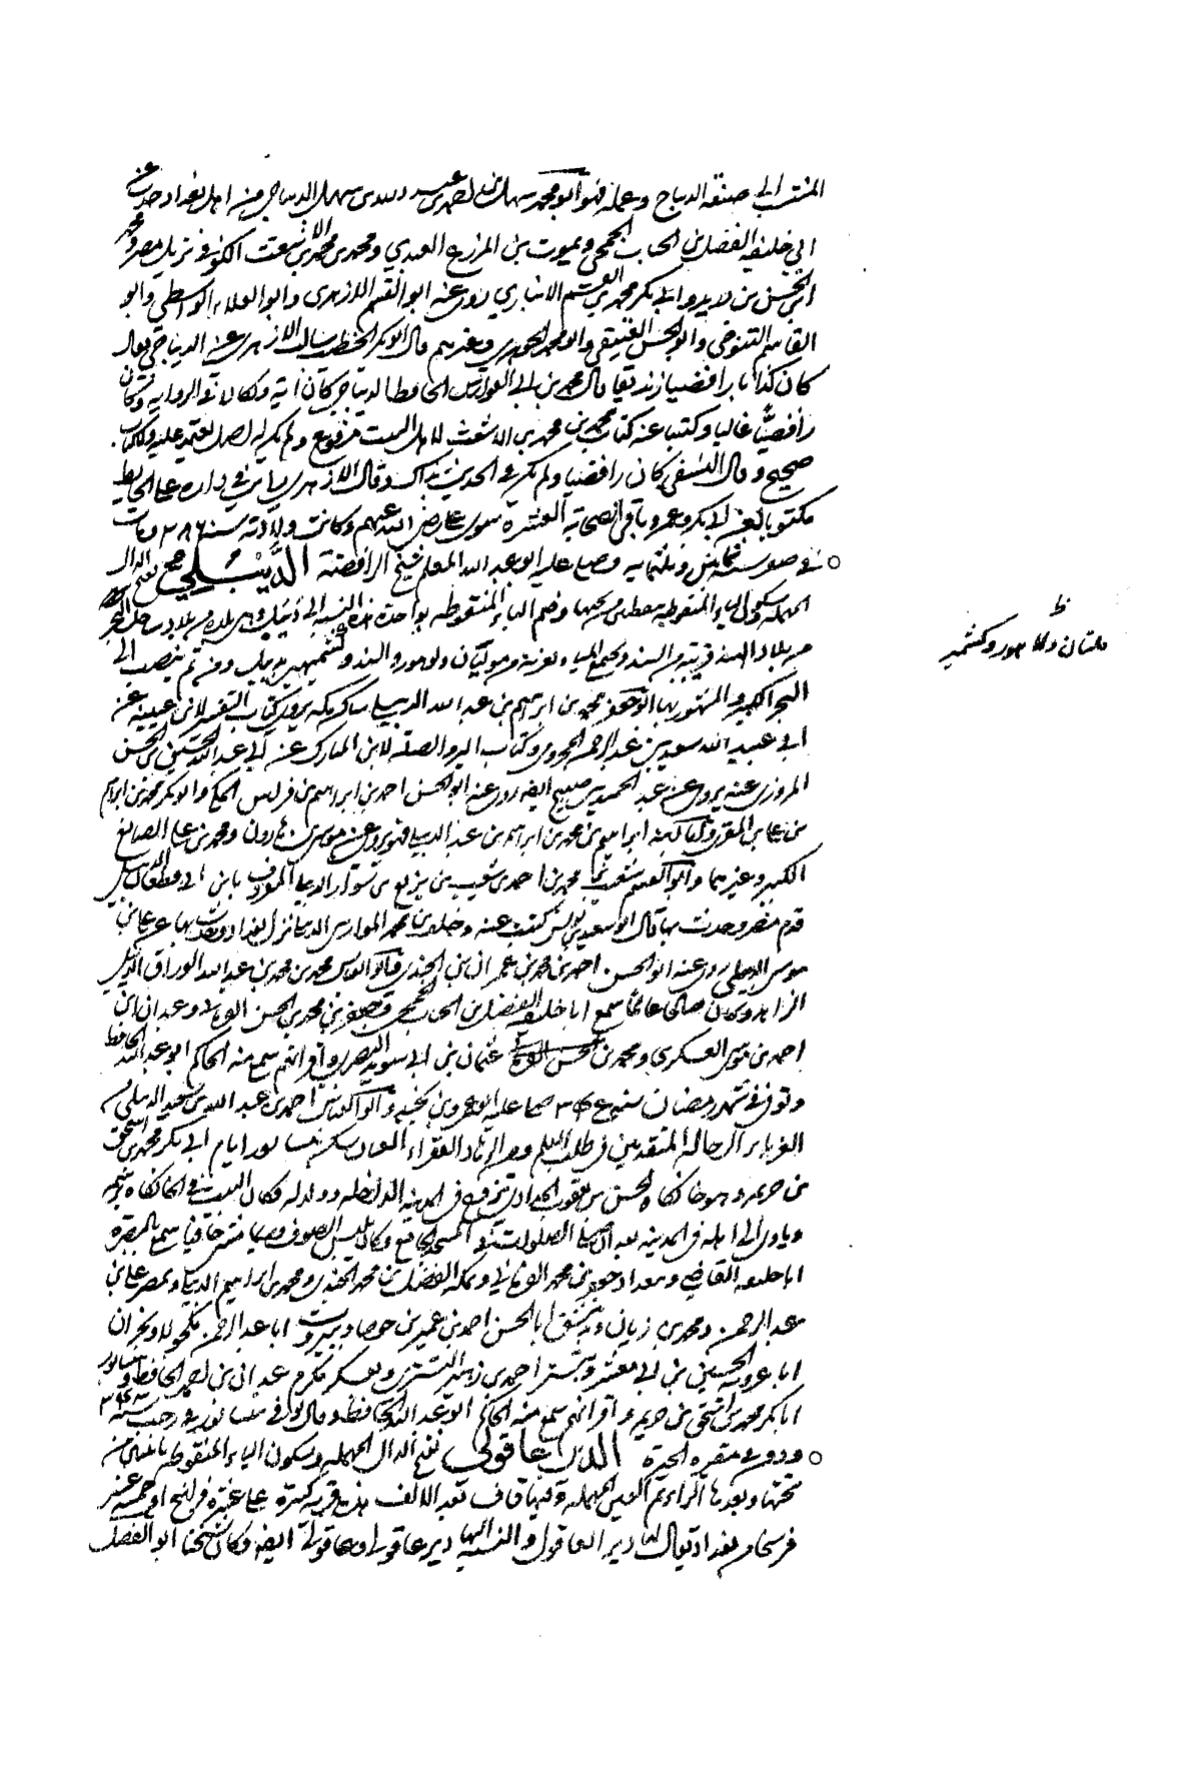 المنتسب الى صنعة الديباج وعمله فهو ابو محمد سهل بن عبد الله بن سهل الديباجي من اهل بغداد حدث عن
ابي خليفة الفضل بن الحباب الجمحي ويموت بن المزرع العبدي ومحمد بن محمد بن الاشعث الكوفي نزيل مصر ومحمد
ابن الحسن بن دريد وابي بكر محمد بن القسم الانباري روى عنه ابو القسم الازهري وابو العلاء الواسطي وابو
القاسم التنوخي وابو الحسن العتيقي وابو محمد الجوهري وغيرهم قال ابو بكر الخطيب سالت الازهري عن الديباجي فقال
كان كذابا رافضيا زنديقا قال محمد بن ابي الفوارس الحافظ الديباجي كان آية ونكالا في الرواية وكان
رافضيًّا غاليا وكتبنا عنه كتاب محمد بن محمد بن الاشعث لاهل البيت مرفوع ولم يكن له اصل يعتمد عليه ولا كتاب
صحيح وقال العتيقي كان رافضيا ولم يكن في الحديث بذاك وقال الازهري رايت في داره على الحايط
مكتوبا لعن ابي بكر وعمر وباقي الصحابة العشرة سوى علي رضي الله عنهم وكانت ولادته سنة ٢٨٦ ومات
في صفر سنة خمس وثمانين وثلثماية وصلى عليه ابو عبد الله المعلم شيخ الرافضة الدَّيْبُلِي بفتح الدال
المهملة وسكون الياء المنقوطة من تحتها وضم الباء المنقوطة بواحدة هذه النسبة الى ديبل وهي بلدة من بلاد ساحل البحر
من بلاد الهند قريبة من السند
البحر الكبير والمشهور بها ابو جعفر محمد بن ابرهيم بن عبد الله الديبلي ساكن مكة يروي كتاب التفسير لابن عيينة عن
ابي عبيد الله سعيد بن عبد الرحمن المخزومي وكتاب البر والصلة لابن المبارك عن ابي عبد الله الحسين بن الحسن
المروزي عنه يروي عن عبد الحميد بن صبيح ايضا روى عنه ابو الحسن احمد بن ابراهيم بن فراس المكي وابو بكر محمد بن ابراهيم
بن علي بن المقري وابنه ابراهيم بن محمد بن ابراهيم بن عبد الله الديبلي يروي عن موسى بن هارون ومحمد بن علي الصائغ
الكبير وغيرهما وابو القسم شعيب بن محمد بن احمد بن شعيب بن بزيع بن سوار الديبلي المعروف بابن ابي قطعان الديبلي
قدم مصر وحدث بها قال ابو سعيد بن يونس كتبت عنه وخلف بن محمد الموازيني الديبلي نزل بغداد وحدث بها عن علي بن
موسى الديبلي روى عنه ابو الحسن احمد بن محمد بن عمران بن الجندي وابو العباس محمد بن محمد بن عبد الله الوراق الديبلي
الزاهد وكان صالحا عالما سمع ابا خليفة الفضل بن الحباب الجمحي وجعفر بن محمد بن الحسن الفريابي وعبدان بن
احمد بن موسى العسكري ومحمد بن عثمان بن ابي سويد البصري واقرانهم سمع منه الحاكم ابو عبد الله الحافظ
وتوفي في شهر رمضان سنة ٣٤٥ صلى عليه ابو عمرو بن نجيد وابو العباس احمد بن عبد الله بن سعيد الديبلي من
الغرباء الرحالة المتقدمين في طلب العلم ومن الزهاد الفقراء العباد سكن نيسابور ايام ابي بكر محمد بن اسحق
بن خزيمة وهو خانكاه الحسن بن يعقوب الحدادي وتزوج في المدينة الداخلة وولد له وكان البيت في الخانكاه برسمه
وياوي الى اهله في المدينة بعد ان يصلي الصلوات في المسجد الجامع وكان يلبس الصوف وربما مشى حافيا سمع بالبصرة
ابا خليفة القاضي وببغداد جعفر بن محمد الفريابي وبمكة المفضل بن محمد الجندي ومحمد بن ابراهيم الديبلي وبمصر علي بن
عبد الرحمن ومحمد بن زيان وبدمشق ابا الحسن احمد بن عمير بن جوصا وببيروت ابا عبد الرحمن مكحولا وبحران
ابا عروبة الحسين بن ابي معشر وبتستر احمد بن زهير التستري وبعسكر مكرم عبدان بن احمد الحافظ وبنيسابور
ابا بكر محمد بن اسحق بن خزيمة واقرانهم سمع منه الحاكم ابو عبد الله الحافظ وقال توفي بنيسابور في رجب سنة ٣٤٣
ودفن في مقبرة الحيرة الدَّيرعاقولي بفتح الدال المهملة وسكون الياء المنقوطة باثنتين من
تحتها وبعدها الراء ثم العين المهملة وفيها قاف بعد الالف هذه قرية كبيرة على عشرة فراسخ او خمسة عشر
فرسخا من بغداد يقال لها دير العاقول والنسبة اليها ديرعاقولي وعاقولي ايضا وكان شيخنا ابو الفضل
ظ
ملتان ولاهور وكشمير